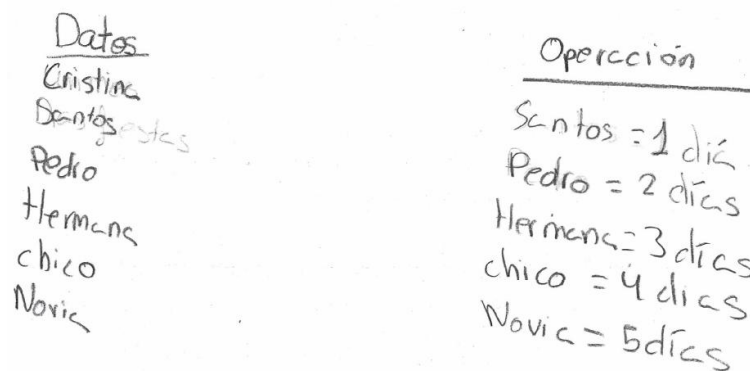 Datos
Cristina
Santos
Pedro
Hermana
chico
Novia
Operación
Santos = 1 día
Pedro = 2 días
Hermana = 3 días
chico = 4 dias
Novia = 5 días